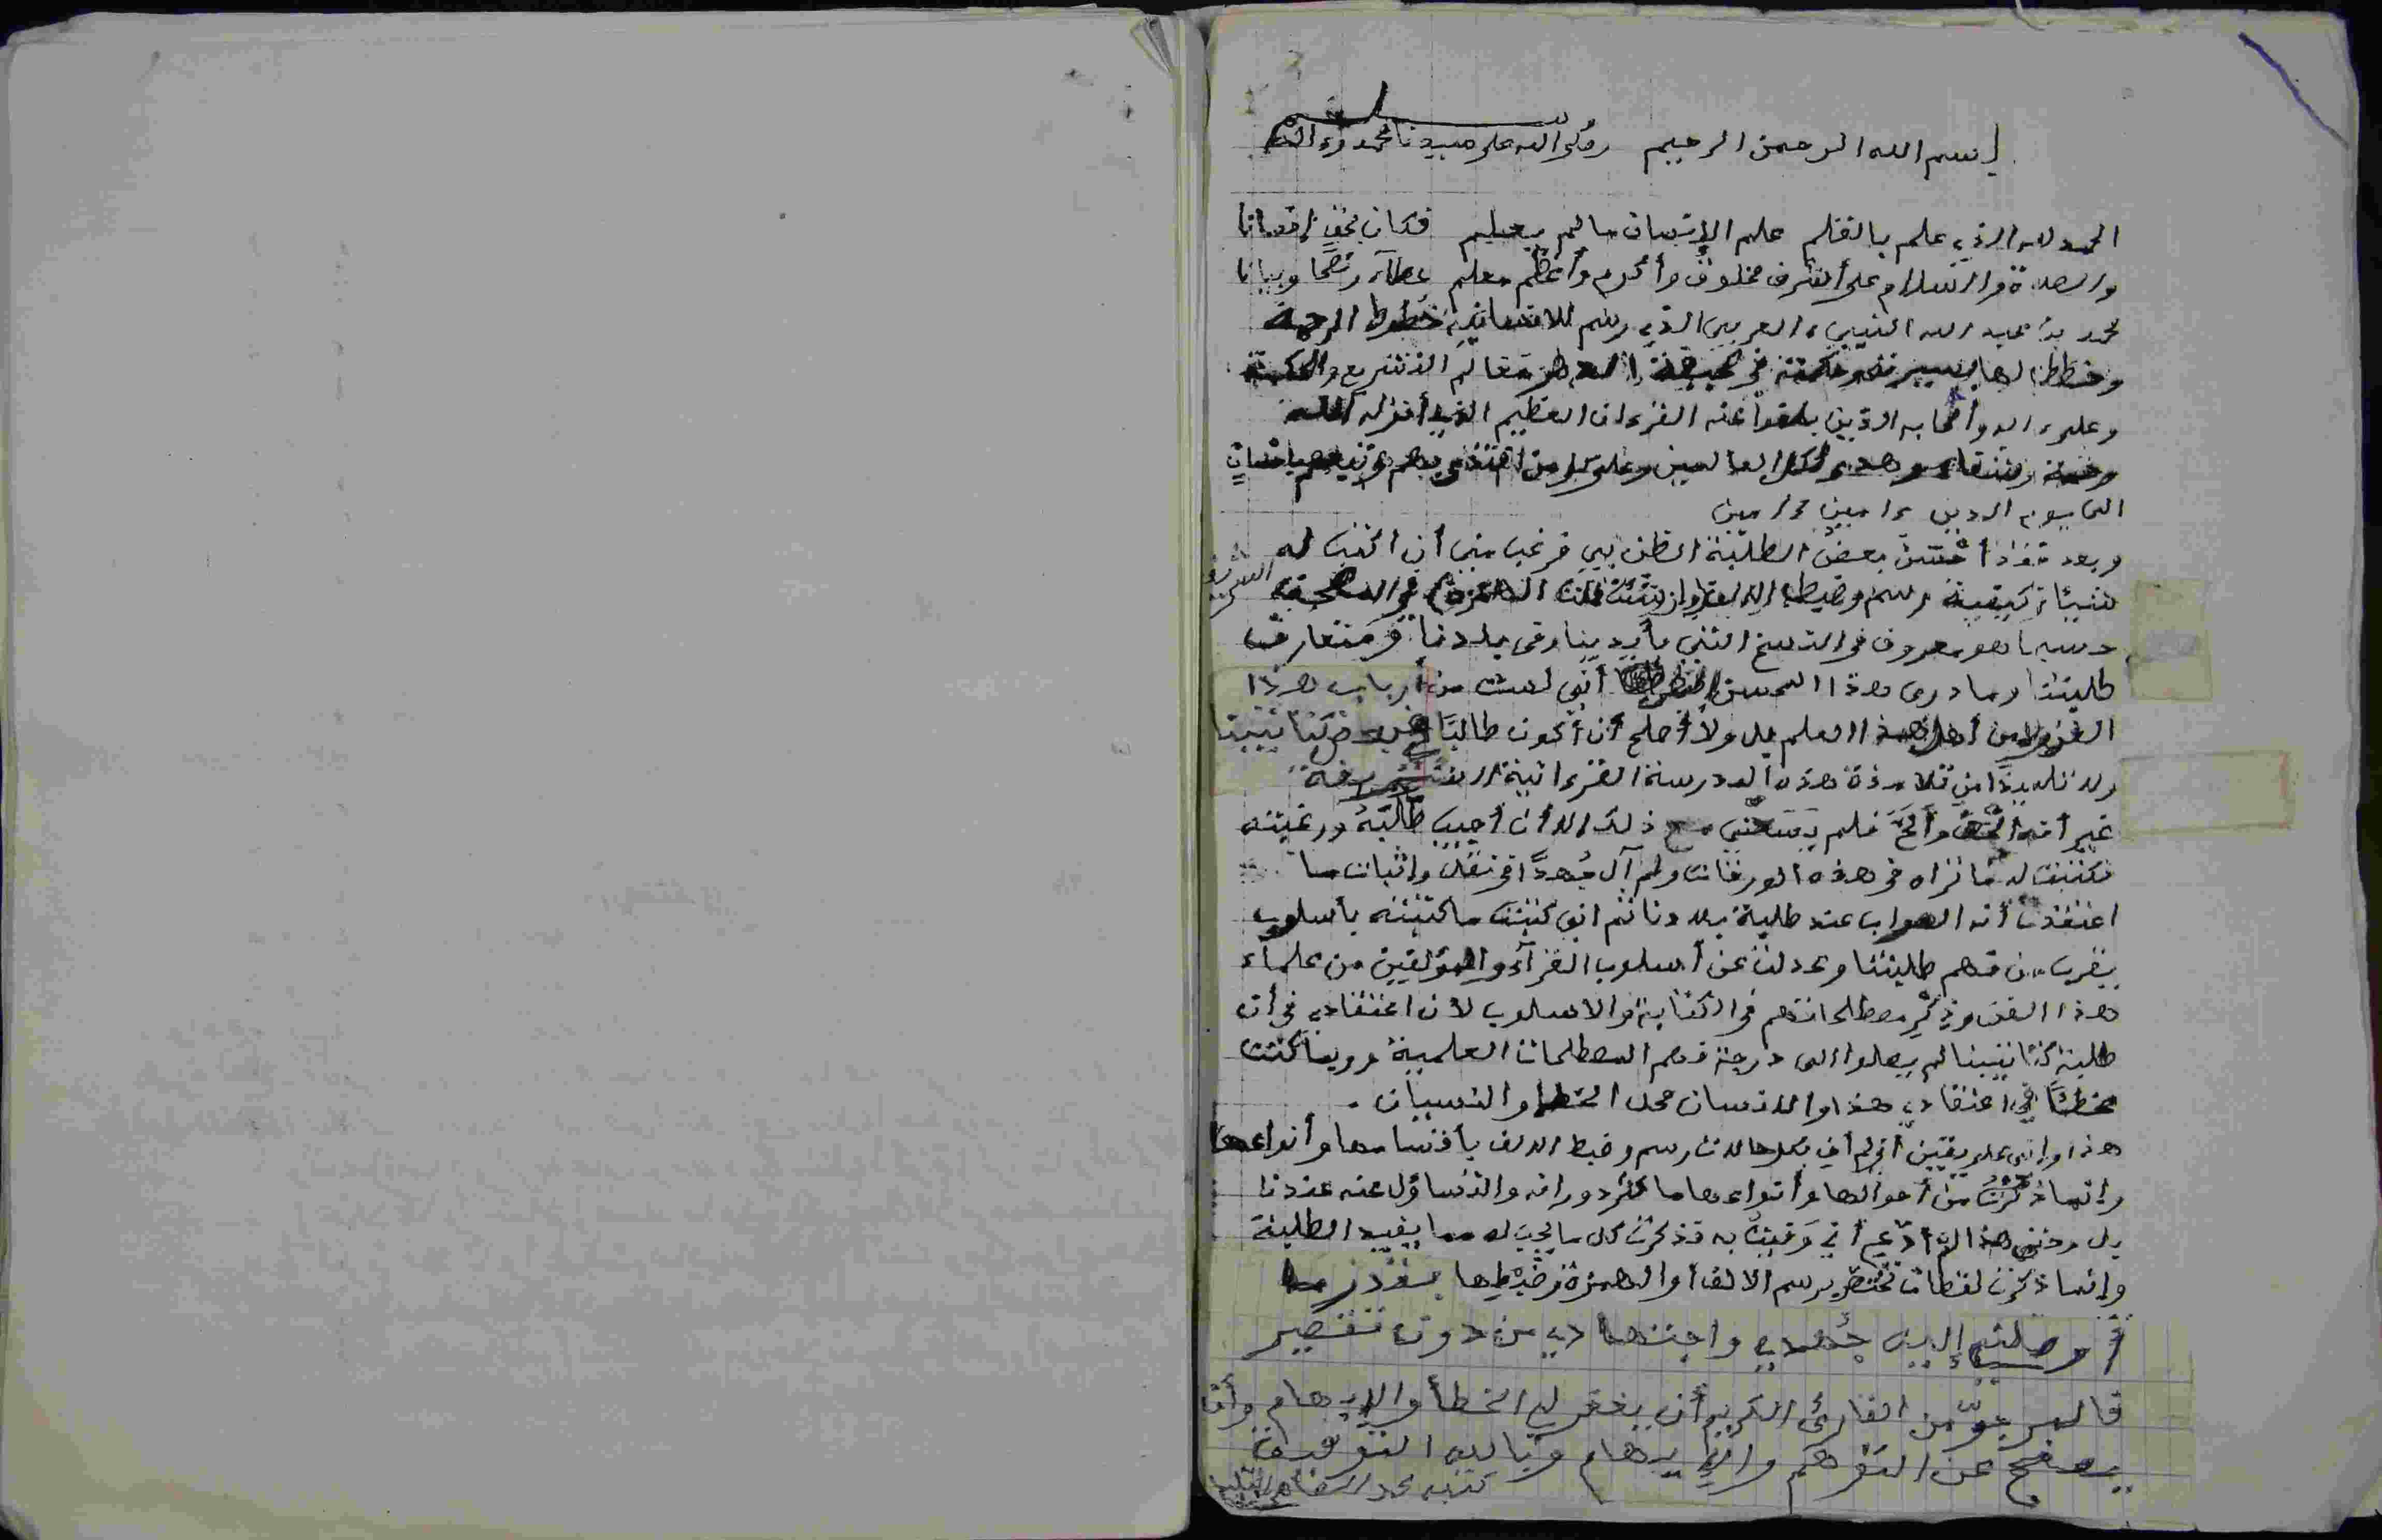 بسم الله الرحمن الرحيم وصلى الله على سيدنا محمد وءاله
الحمد لله الذي علم بالقلم علم الإنسان ما لم يعلم فكان بحق إنسانا
والصلاة والسلام على أشرف مخلوق وأكرم وأعظم معلم عطاء ونصحا وبيانا
محمد بن عبد الله النبيء العربي الذي رسم للانسانية خطوط الرحمة
وخطط لها بسيرته وحكمته في صحيفة الدهر معالم التشريع والحكمة
وعلى ءاله وأصحابه الذين بلغوا عنه القرءان العظيم الذي أنزله الله
رحمة وشفاء وهدى لكل العالمين وعلى كل من اقتدى بهم وتبعهم بإحسان
الى يوم الدين ءامين ءامين
وبعد فقد أحسن بعض الطلبة الظن بي فرغب مني أن اكتب له
شيئا في كيفية رسم وضبط الألف وإن شئت قلت الهمزة في المصحف الشريف
حسبما هو معروف في النسخ التي بأيدينا وفي بلادنا ومتعارف
طلبتنا وما درى هذا المحسن الظن أني لست من أرباب هذا
الفن ولا من أهل هذا العلم بل ولا أصلح أن أكون طالبا في بعض كتاتيبنا
ولا تلميذا من تلامذة هذه المدرسة القرءانية الشريفة
غير أنه ألحف وألح فلم يسعني مع ذلك إلا أن أجيب طلبه ورغبته
فكتبت له ما تراه في هذه الورقات ولم آل جهدا في نقل وإثبات ما
اعتقدت أنه الصواب عند طلبة بلادنا ثم اني كتبت ما كتبته بأسلوب
يقرب من فهم طلبتنا وعدلت عن أسلوب القرآء والمؤلفين من علماء
هذا الفن وذكر مصطلحاتهم في الكتابة والاسلوب لأن اعتقادي في أن
طلبة كتاتيبنا لم يصلوا الى درجة فهم المصطلحات العلمية وربما كنت
مخطئا في اعتقادي هذا والانسان محل الخطإ والنسيان .
هذا وإني على يقين أني لم أف بكل حالات رسم وضبط الألف بأقسامها وأنواعها
وإنما ذكرت من أحوالها وأنواعها ما كثر دورانه والتساؤل عنه عندنا
بل وحتى هذا لا أدعي أني وفيت به فذكرت كل ما يجب له مما يفيد الطلبة
وإنما ذكرت لقطات تختص برسم الالف أو الهمزة وضبطها بقدر ما
أوصلني إليه جهدي واجتهادي من دون تقصير
فالمرجو من القارئ الكريم أن يغفر لي الخطأ والإبهام وأن
يصفح عن التوهم والإيهام وبالله التوفيق
كتبه محمد